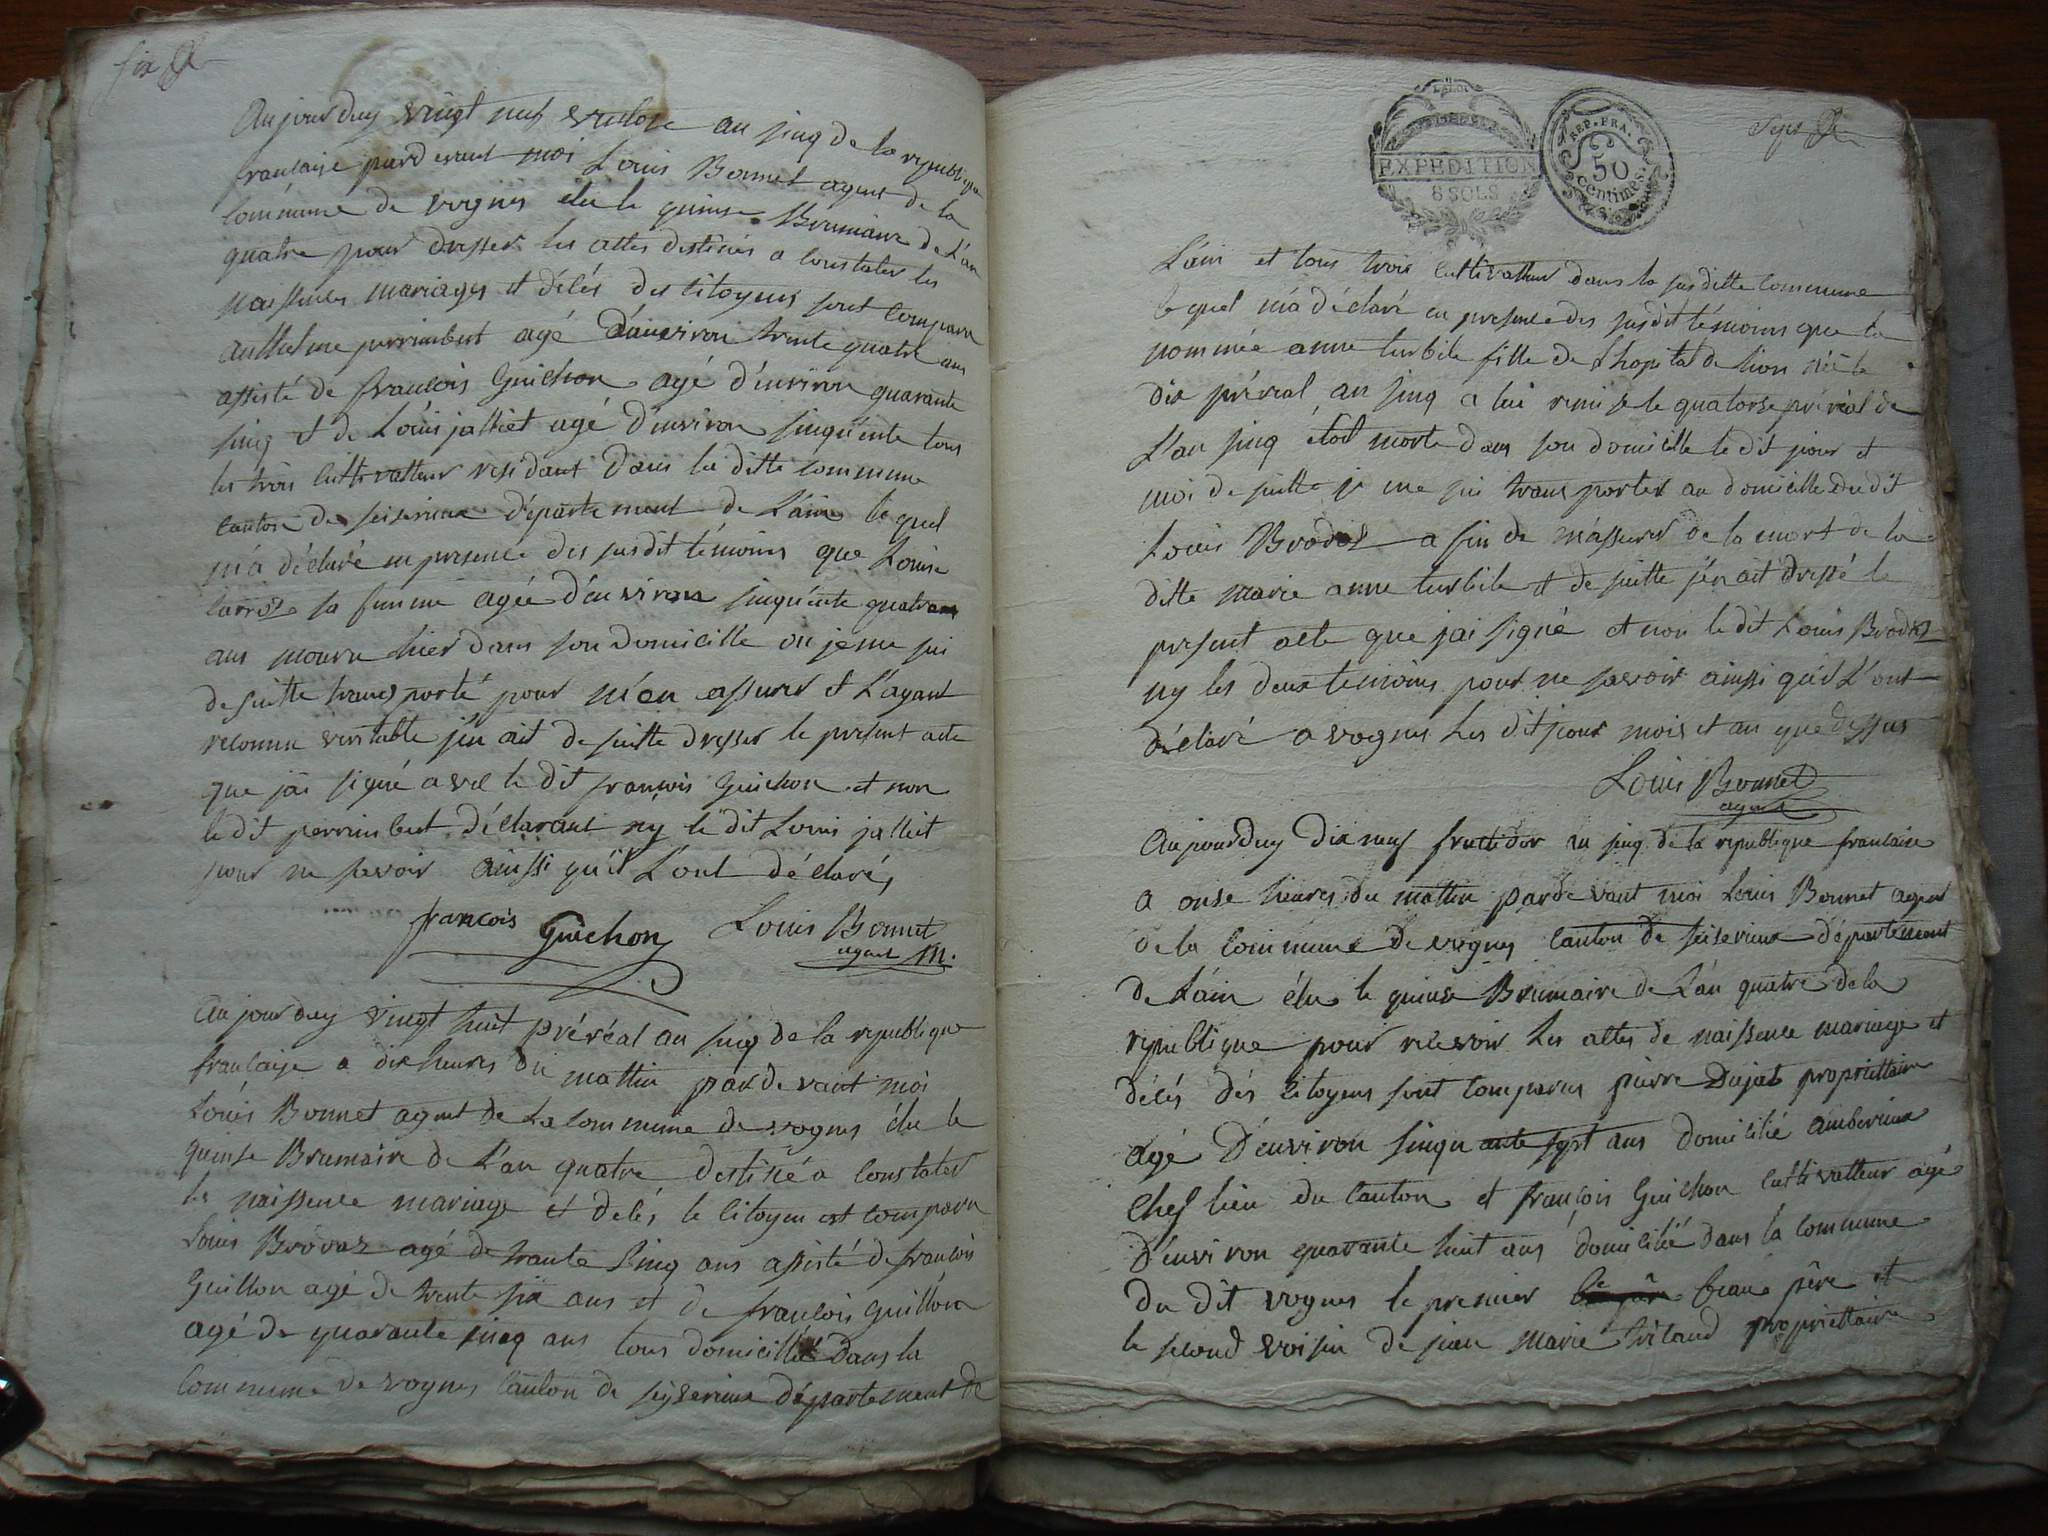 six
Aujourduy vingt neuf vantose an sinq de la republique
francaise pardevant moi Louis Bonnet agent de la
commune de vognes élu le quinse Brumaire de L'an
quatre pour dresser les attes destinés a constater les
naissences mariages et délés des citoyens sont comparu
anthelme perrimbert agé d'anviron trente quatre ans
assisté de francois Guichon agé d'environ quarante
sinq et de Louis jalliet agé d'environ sinquente tous
les trois cultivatteur residant dans la ditte commune
canton de seiserieux département de L'ain le quel
m'a déclaré en presence des susdit témoins que Louise
carroz sa femme agée d'environ sinquente quatre
ans mouru hier dans son domicille ou je me sui
de suitte transporté pour m'en assurer et L'ayant
reconnu veritable j'en ait de suitte dresser le present acte
que jai signé avec le dit francois Guichon et non
le dit perrimbert déclarant ny le dit Louis jalliet
pour ne savoir ainssi qu'il L'ont déclaré,
francois Guichon Louis Bonnet
agent m.
Aujourduy vingt huit préréal an sinq de la republique
francaise a dix heures du mattin pardevant moi
Louis Bonnet agent de La commune de vognes élu le
quinse Brumaire de L'an quatre destiné a constater
les naissence mariage et delés le citoyen est comparu
Louis Brovaz agé de trante sinq ans assisté de francois
Guillon agé de trente six ans et de francois Guillon
agé de quarante sinq ans tous domicillié dans la
commune de vognes canton de seyserieux département de
LA LOI
EXPEDITION
8 SOLS
REP. FRA.
50
centimes.
sept
L'ain et tous trois cultivatteur dans la susditte commune
le quel m'a déclaré en presence des susdit témoins que la
nommée anne turbile fille de L'hopital de lion née le
dix préréal an sinq a lui remise le quatorse préréal de
L'an sinq étoit morte dans son domicille le dit jour et
moi de suitte je me sui transporter au domicille du dit
Louis Brovaz a fin de m'assurer de la mort de la
ditte marie anne turbile et de suitte j'en ait dressé le
present acte que jai signé et non le dit Louis Brovaz
ny les deux temoins pour ne savoir ainssi qu'il L'ont
déclaré a vognes Les dit jour mois et an que dessus
Louis Bonnet
agent
Aujourduy dix neuf fructidor an sinq de la republique francaise
a onse heures du mattin pardevant moi Louis Bonnet agent
de la commune de vognes canton de seiserieux département
de L'ain élu le quinse Brumaire de L'an quatre de la
republique pour recevoir Les attes de naissence mariage et
délés dés citoyens sont comparus pierre Dujat propriettaire
agé D'environ sinquante sept ans domicilié amberieux
chef lieu du canton et françois Guichon cultivatteur agé
D'environ quarante huit ans domicilié dans la commune
du dit vognes le premier beau père et
le second voisin de jean marie trilaud propriettaire